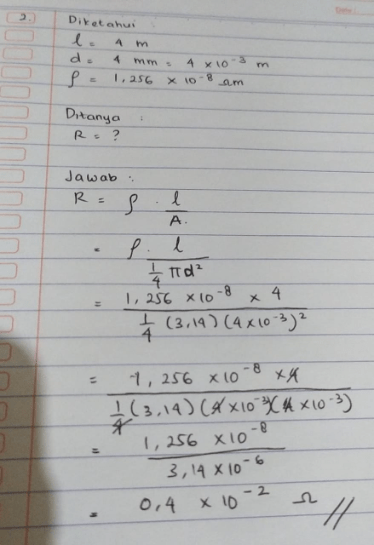 2. Diketahui :
l = 4 m
d = 4 mm = 4 × 10⁻³ m
ρ = 1,256 × 10⁻⁸ Ωm
Ditanya :
R = ?
Jawab :
R = ρ . l
A.
= ρ . l
1/4 πd²
= 1,256 × 10⁻⁸ × 4
1/4 (3,14) (4×10⁻³)²
= 1,256 × 10⁻⁸ × 4
1/4 (3,14) (4×10⁻³)(4×10⁻³)
= 1,256 × 10⁻⁸
3,14 × 10⁻⁶
= 0,4 × 10⁻² Ω //